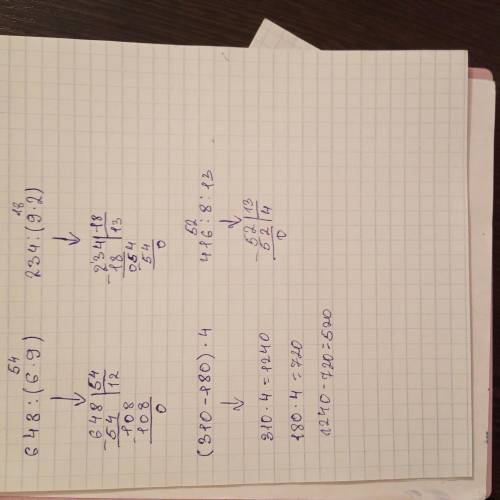 54
648:(6·9)
↓
648 | 54
-54 | 12
108
-108
0
18
234:(9·2)
↓
234 | 18
-18 | 13
054
-54
0
(310-180)·4
↓
310·4=1240
180·4=720
1240-720=520
52
416:8:13
↓
52 | 13
-52 | 4
0